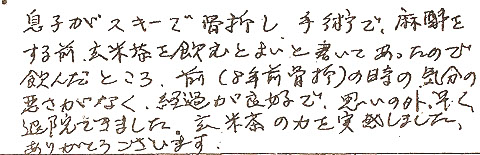 息子がスキーで骨折し、手術で、麻酔を
する前、玄米茶を飲むとよいと書いてあったので
飲んだところ、前(8年前骨折)の時の気分の
悪さがなく、経過が良好で、思いの外、早く
退院できました。玄米茶の力を実感しました、
ありがとうございます。